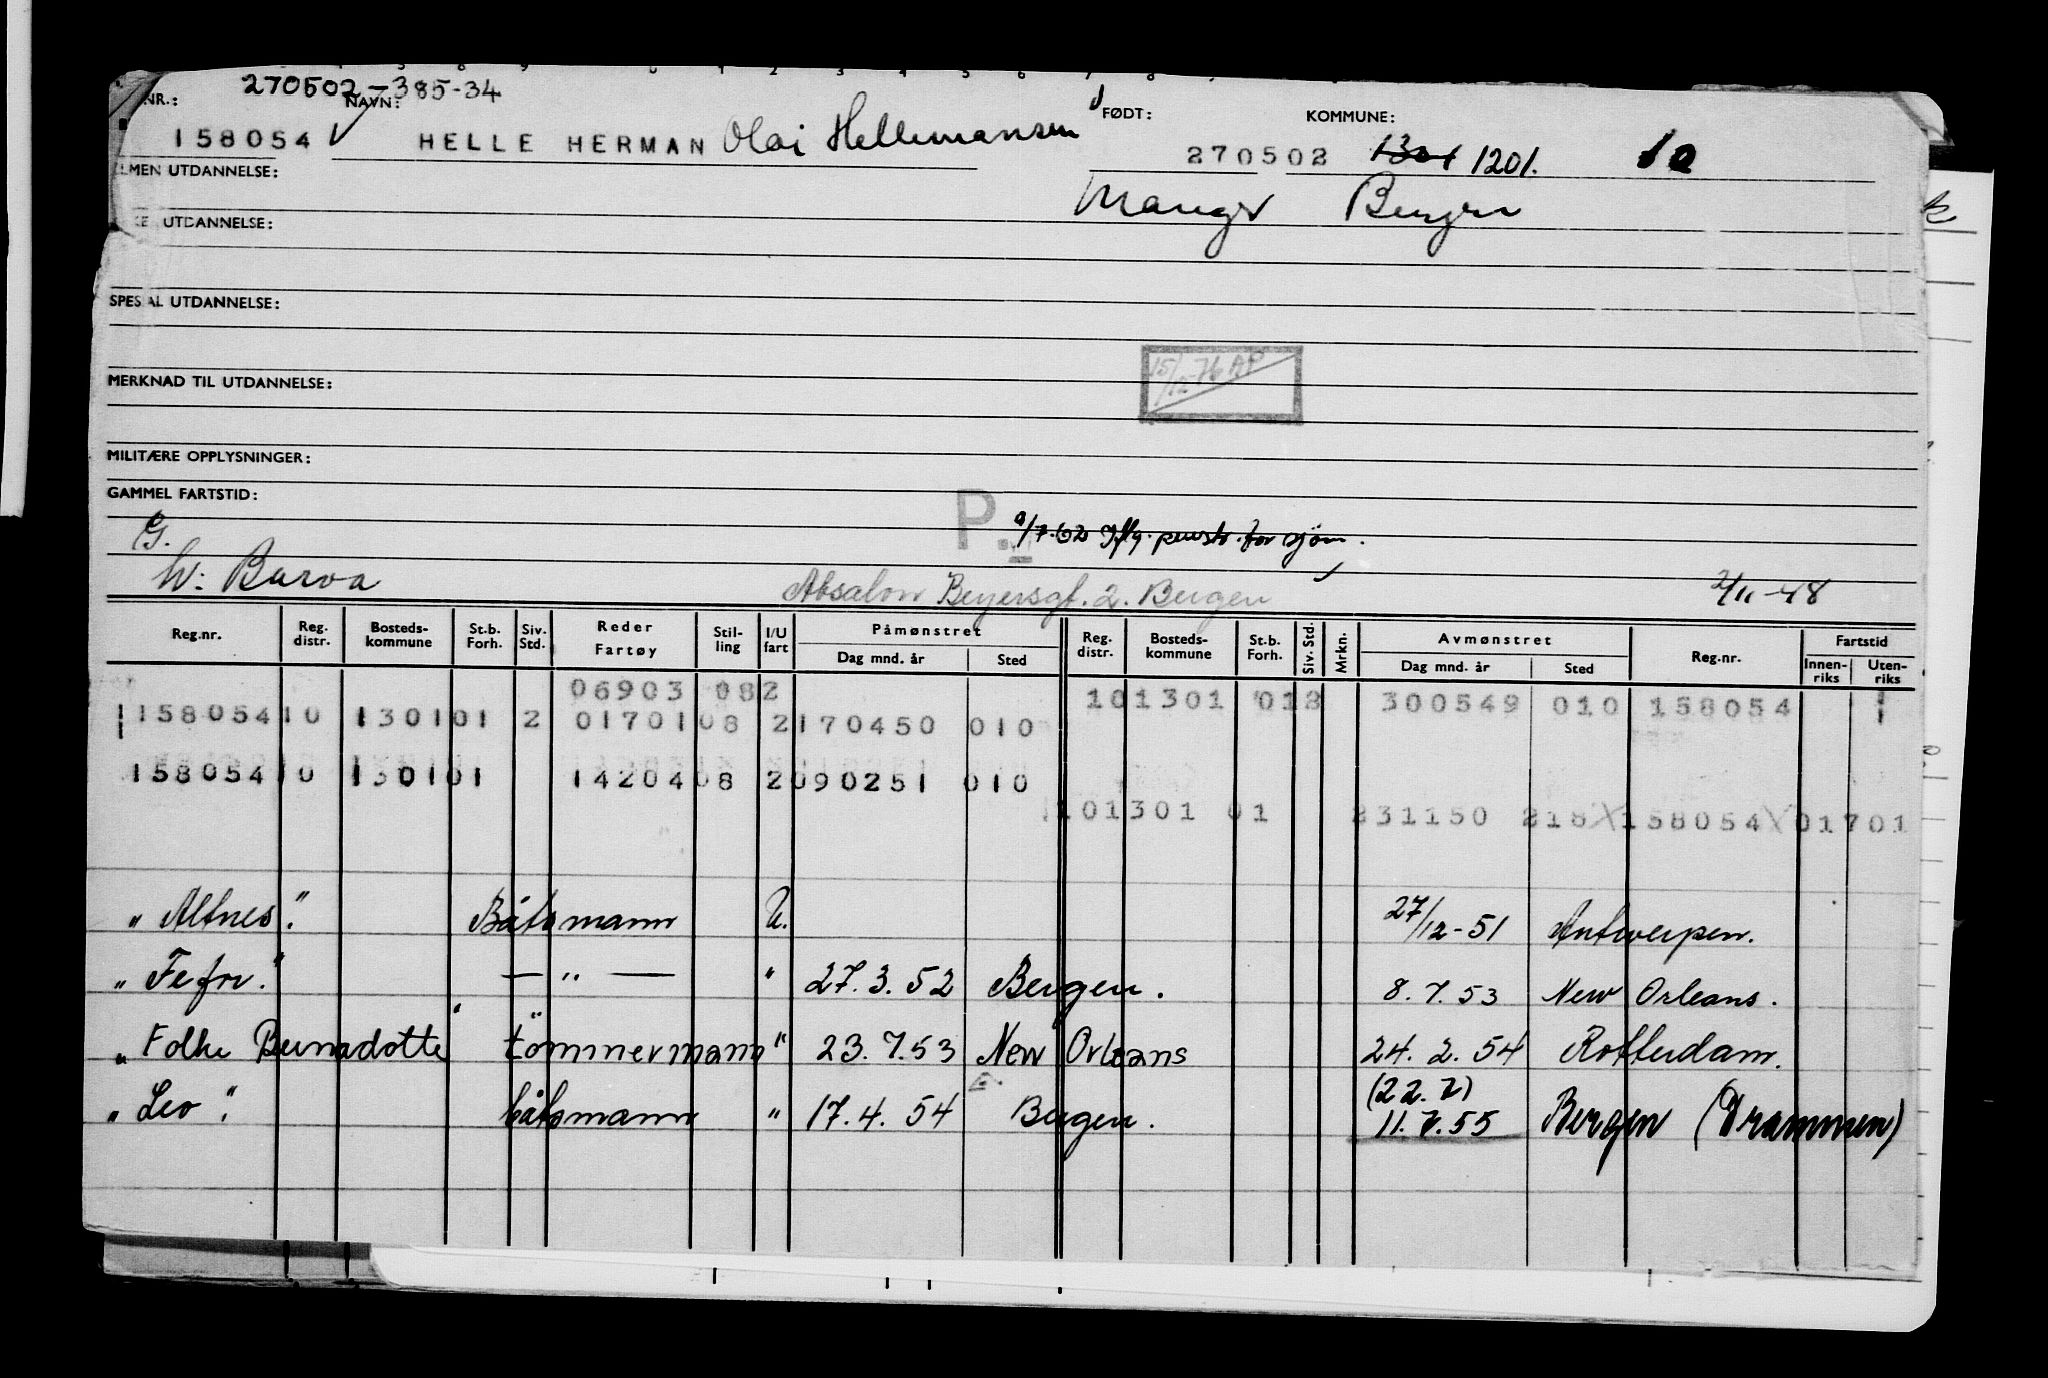 270502-385-34
NR.: NAVN: FØDT: KOMMUNE:
158054 HELLE HERMAN Olai Hellemansen 270502 1301 1201. 10
LMEN UTDANNELSE: Manger Bergen
UTDANNELSE:
SPESIAL UTDANNELSE:
15/12-76 AP
MERKNAD TIL UTDANNELSE:
MILITÆRE OPPLYSNINGER:
GAMMEL FARTSTID:
G. P. /7.62 for sjøm.
W: Baroa Absalon Beyersgt. 2. Bergen 2/11-48
Reg.nr. Reg. distr. Bosteds-kommune St.b. Forh. Siv. Std. Reder Fartøy Stil-ling I/U fart Påmønstret Dag mnd. år Sted Reg. distr. Bosteds-kommune St.b. Forh. Siv. Std. Mrkn. Avmønstret Dag mnd. år Sted Reg.nr. Fartstid Innen-riks Uten-riks
06903 082 101301 012 300549 010 158054 1
1158054 10 130101 2 01701 08 2 170450 010
158054 10 130101 14204 08 2 090251 010
101301 01 231150 218 X 158054 X 01701
" Altnes ". Båtsmann U. 27/12-51 Antwerpen.
" Fefor. " — " — " 27.3.52 Bergen. 8.7.53 New Orleans.
" Folke Bernadotte " tömmermann " 23.7.53 New Orleans 24.2.54 Rotterdam.
(22.7)
" Leo ". båtsmann " 17.4.54 Bergen. 11.7.55 Bergen (Drammen)